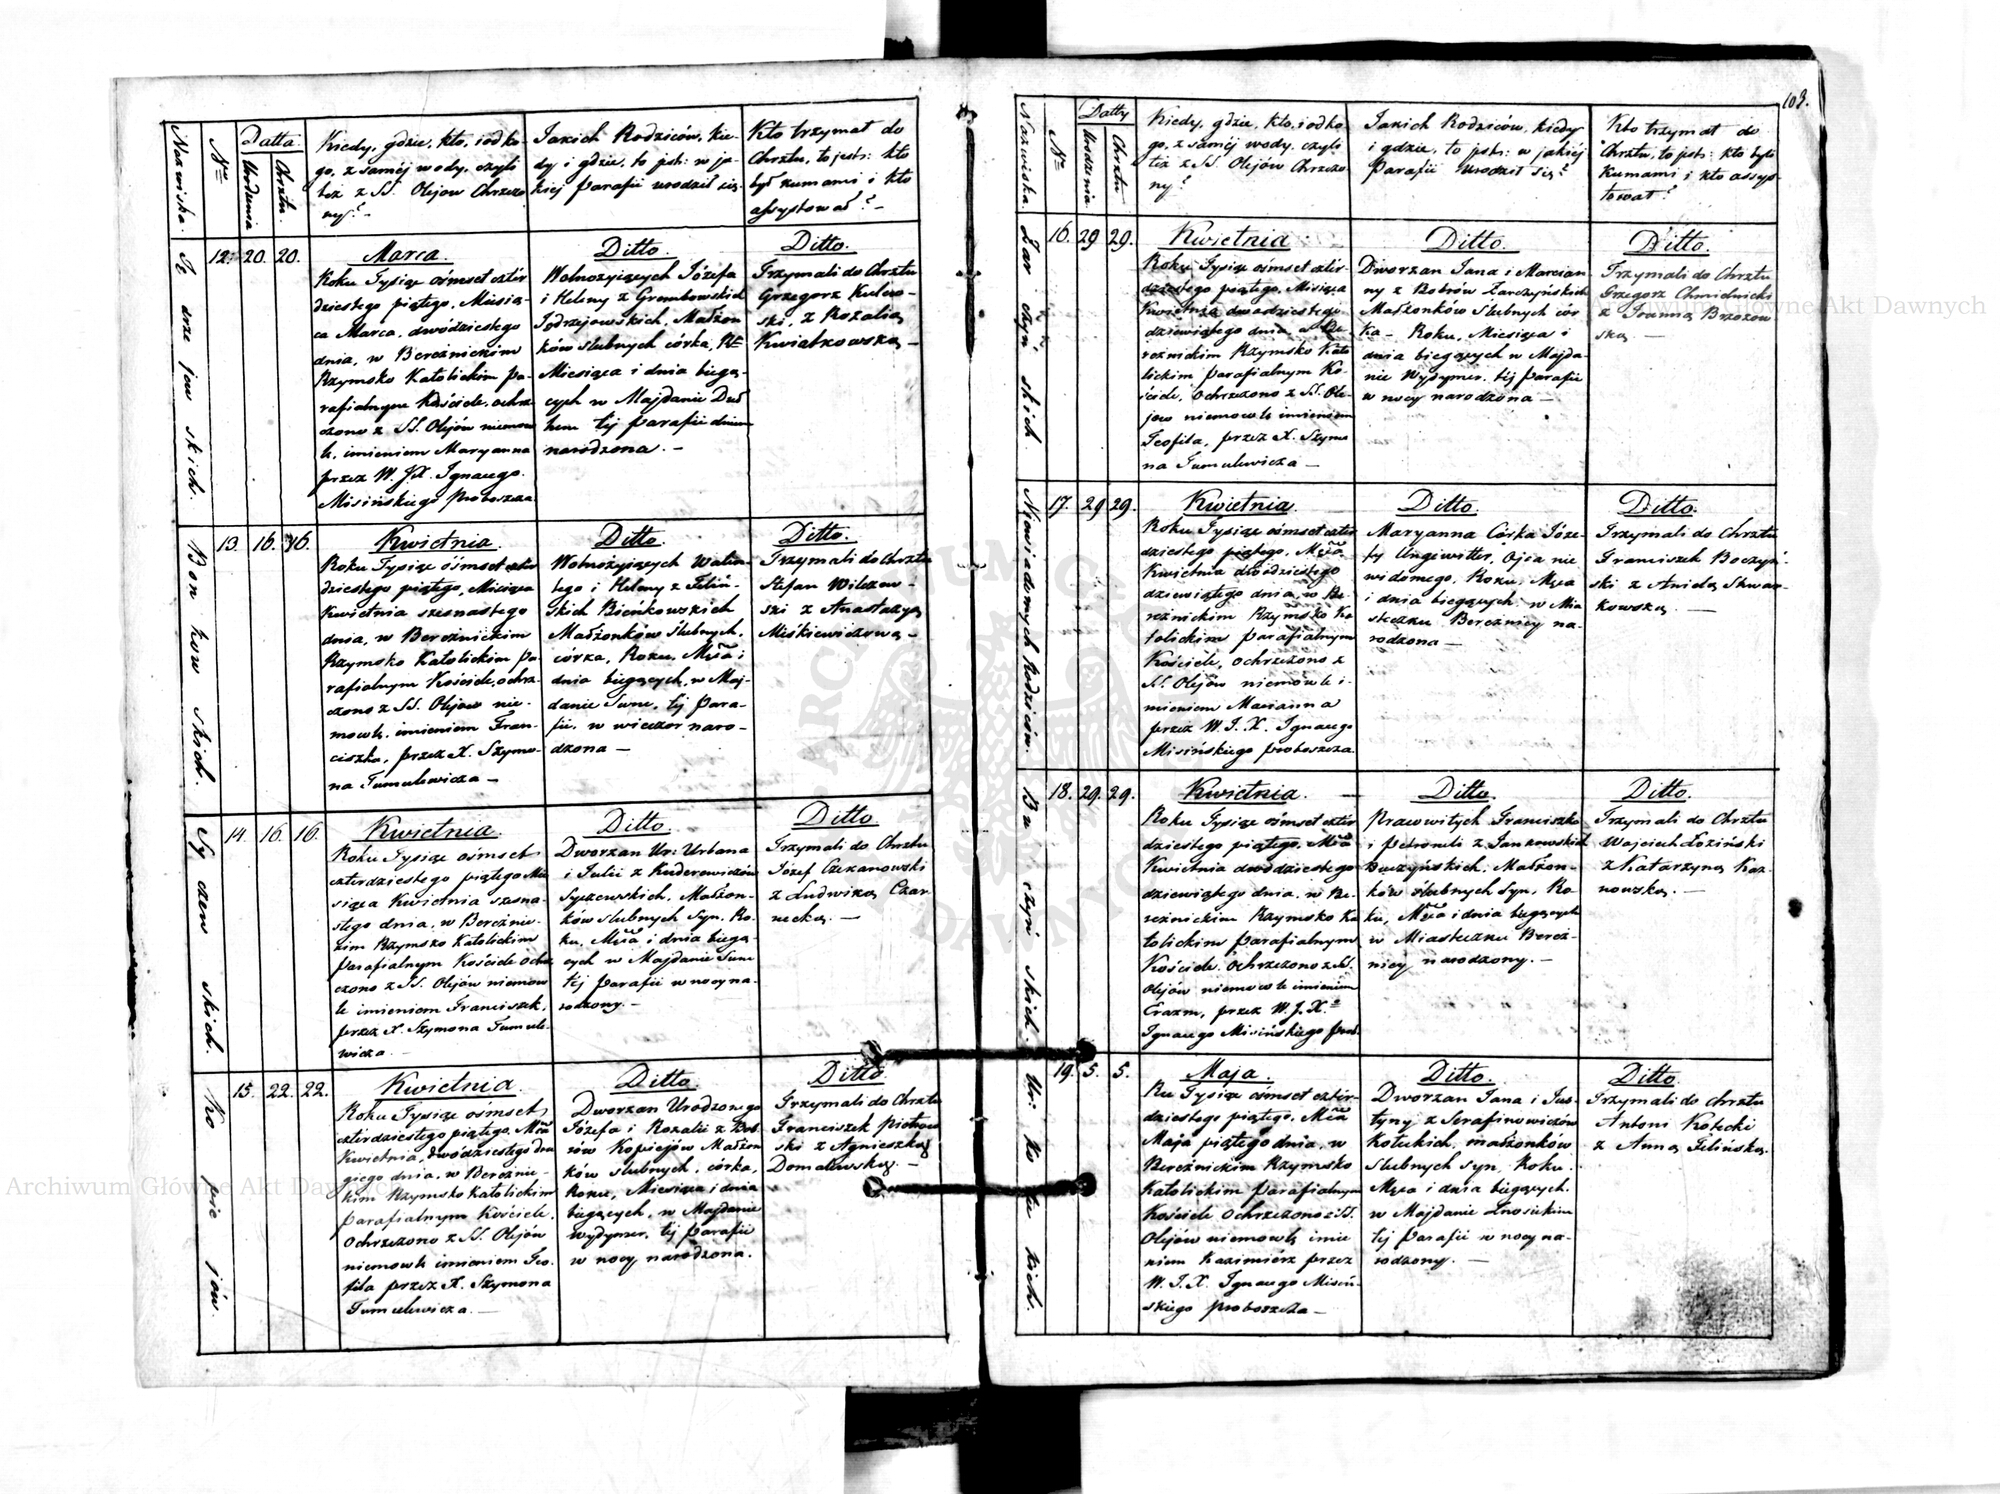 Nazwiska.
Nro
Datta.
Urodzenia
Chrztu.
Kiedy, gdzie, kto, i od ko-
go, z samej wody, czyli
też z SS. Olejów Chrzczo
ny? -
Jakich Rodziców, kie-
dy i gdzie, to jest: w ja-
kiej Parafii urodził się.
Kto trzymał do
Chrztu, to jest: kto
był kumami i kto
assystował? -
Je drze jew skich.
12. 20. 20.
Marca.
Roku Tysiąc ośmset czter
dziestego piątego, Miesią-
ca Marca, dwódziestego
dnia, w Bereźnickim
Rzymsko Katolickim Pa-
rafialnym Kościele, ochrz-
czono z SS. Olejów niemow
le, imieniem Maryanna
przez W. JX. Ignacego
Misińskiego Proboszcza
Ditto.
Wolnożyjących Józefa
i Heleny z Grembowskich
Jędrzejowskich, Małżon
ków ślubnych córka, Rku
Miesiąca i dnia bieżą-
cych w Majdanie Dub
hem tej Parafii dniem
narodzona. -
Ditto.
Trzymali do Chrztu
Grzegorz Kulew-
ski, z Rozalią
Kwiatkowską -
Bon kow skich.
13. 16. 16.
Kwietnia.
Roku Tysiąc ośmset czter
dziestego piątego, Miesiąca
Kwietnia szesnastego
dnia, w Bereźnickim
Rzymsko Katolickim Pa-
rafialnym Kościele, ochrz-
czono z SS. Olejów nie-
mowlę, imieniem Fran-
ciszka, przez X. Szymo-
na Tumulewicza -
Ditto.
Wolnożyjących Walen-
tego i Heleny z Feliń-
skich Bieńkowskich
Małżonków ślubnych,
córka, Roku, Msca i
dnia bieżących, w Maj-
danie Sune, tej Para-
fii, w wieczor naro-
dzona -
Ditto.
Trzymali do Chrztu
Stefan Wilczew-
ski z Anastazyą
Miśkiewiczową -
Sy czew skich.
14. 16. 16.
Kwietnia.
Roku Tysiąc ośmset
czterdziestego piątego Mie
siąca Kwietnia szesna-
stego dnia, w Bereźnic-
kim Rzymsko Katolickim
Parafialnym Kościele ochrz
czono z SS. Olejów niemow
le imieniem Franciszek,
przez X. Szymona Tumule-
wicza. -
Ditto.
Dworzan Ur: Urbana
i Julii z Kuderewiczów
Syczewskich, Małżon-
ków ślubnych Syn, Ro-
ku, Msca i dnia bieżą-
cych w Majdanie Sune
tej Parafii w nocy na-
rodzony. -
Ditto.
Trzymali do Chrztu
Józef Czekanowski
z Ludwiką Czar-
necką. -
Ko pie jów.
15. 22. 22.
Kwietnia.
Roku Tysiąc ośmset
czterdziestego piątego, Msca
Kwietnia, dwódziestego dru
giego dnia, w Bereźnic-
kim Rzymsko Katolickim
Parafialnym Kościele,
Ochrzczono z SS. Olejów
niemowle imieniem Teo-
fila przez X. Szymona
Tumulewicza. -
Ditto.
Dworzan Urodzonego
Józefa i Rozalii z Bob-
rów Kopiejów Małżon
ków ślubnych, córka,
Roku, Miesiąca i dnia
bieżących, w Majdanie
Wydymer, tej Parafii
w nocy narodzona.
Ditto
Trzymali do Chrztu
Franciszek Piotrow
ski z Agnieszką
Domalewską. -
103.
Nazwiska.
Nro
Datty
Urodzenia
Chrztu.
Kiedy, gdzie, kto, i od ko-
go, z samej wody, czyli
też z SS. Olejów Chrzczo-
ny?
Jakich Rodziców, kiedy
i gdzie, to jest: w jakiej
Parafii urodził się?
Kto trzymał do
Chrztu, to jest: kto byli
Kumami i kto assys-
tował?
Żar czyń skich
16. 29 29.
Kwietnia
Roku Tysiąc ośmset czter-
dziestego piątego, Miesiąca
Kwietnia dwadziestego
dziewiątego dnia, w Be-
reźnickim Rzymsko Kato
lickim Parafialnym Ko-
ściele, ochrzczono z SS. Ole-
jów niemowlę imieniem
Teofila, przez X. Szymo
na Tumulewicza -
Ditto.
Dworzan Jana i Marcian-
ny z Bobrów Żarczyńskich
Małżonków ślubnych cór
ka - Roku, Miesiąca i
dnia bieżących w Majda-
nie Wydymer, tej Parafii
w nocy narodzona -
Ditto.
Trzymali do Chrztu
Grzegorz Chmielnicki
z Joanną Brzozow
ską -
Niewiadomych Rodziców.
17. 29 29.
Kwietnia.
Roku Tysiąc ośmset czter
dziestego piątego, Msca
Kwietnia dwódziestego
dziewiątego dnia, w Be-
reźnickim Rzymsko Ka
tolickim Parafialnym
Kościele, ochrzczono z
SS. Olejów niemowle i-
mieniem Marianna
przez W. J. X. Ignacego
Misińskiego proboszcza
Ditto.
Maryanna Córka Józe-
fy Ungewitter, Ojca nie
wiadomego, Roku, Msca
i dnia bieżących, w Mia
steczku Bereźnicy na-
rodzona -
Ditto.
Trzymali do Chrztu
Franciszek Boczyń-
ski z Anielą Skwar-
kowską. -
Bu czyń skich.
18. 29. 29.
Kwietnia.
Roku Tysiąc ośmset czter
dziestego piątego, Msca
Kwietnia dwódziestego
dziewiątego dnia, w Be-
reźnickim Rzymsko Ka
tolickim Parafialnym
Kościele, Ochrzczono z SS.
Olejów niemowle imieniem
Erazm, przez W. J. X.
Ignacego Misińskiego prob.
Ditto.
Prawowitych Franciszka
i Petroneli z Jankowskich
Buczyńskich, Małżon-
ków ślubnych Syn, Ro-
ku, Msca i dnia bieżących
w Miasteczku Bereź-
nicy narodzony. -
Ditto.
Trzymali do Chrztu
Wojciech Łoziński
z Katarzyną Kaz-
nowską. -
Ur: Ko tec kich.
19. 5. 5.
Maja.
Rku Tysiąc ośmset czter-
dziestego piątego, Msca
Maja piątego dnia, w
Bereźnickim Rzymsko
Katolickim Parafialnym
Kościele Ochrzczono z SS.
Olejów niemowlę imie
niem Kazimierz przez
W. J. X. Ignacego Misiń-
skiego proboszcza -
Ditto.
Dworzan Jana i Jus-
tyny z Serafinowiczów
Koteckich, małżonków
ślubnych syn, Roku,
Msca i dnia bieżących,
w Majdanie Znosickim
tej Parafii w nocy na-
rodzony. -
Ditto.
Trzymali do Chrztu
Antoni Kotecki
z Anną Felińską.
Archiwum Główne Akt Dawnych
Archiwum Główne Akt Dawnych
ARCHIWUM GŁÓWNE AKT DAWNYCH